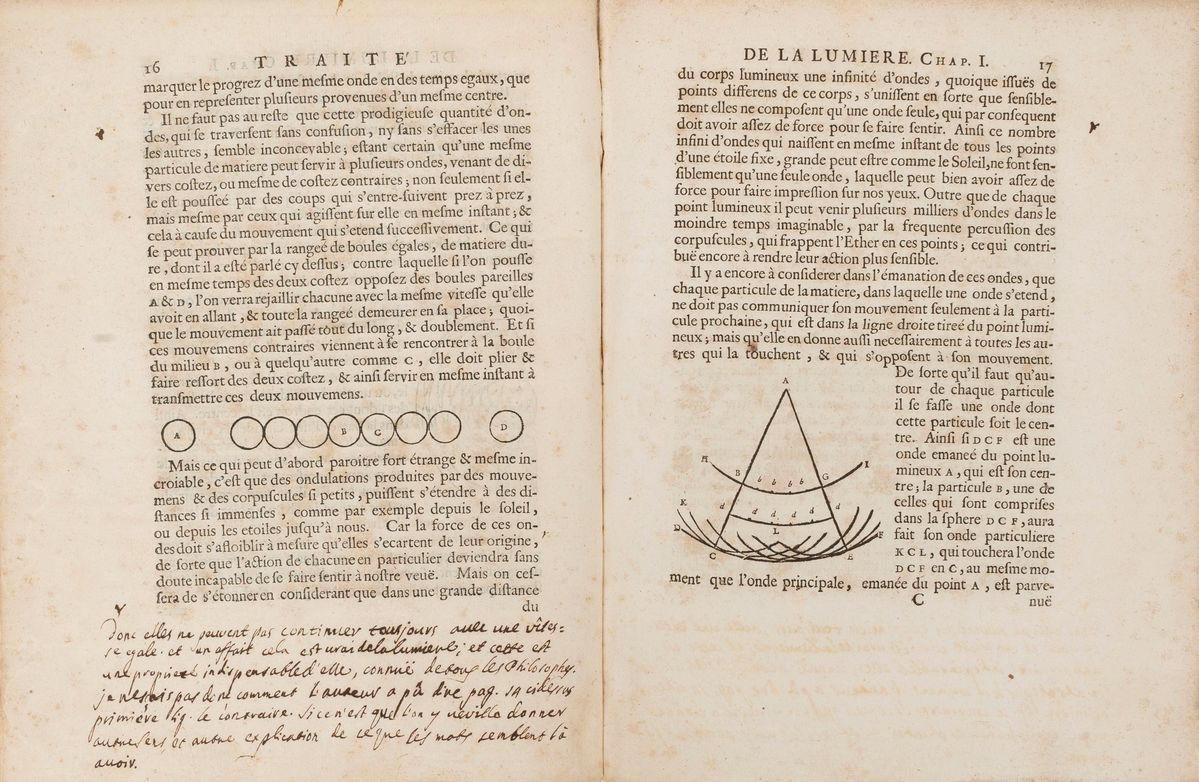 16 TRAITÉ
marquer le progrez d'une mesme onde en des temps egaux, que
pour en representer plusieurs provenues d'un mesme centre.
Il ne faut pas au reste que cette prodigieuse quantité d'on-
des, qui se traversent sans confusion, ny sans s'effacer les unes
les autres, semble inconcevable; estant certain qu'une mesme
particule de matiere peut servir à plusieurs ondes, venant de di-
vers costez, ou mesme de costez contraires; non seulement si el-
le est pousseé par des coups qui s'entre-suivent prez à prez,
mais mesme par ceux qui agissent sur elle en mesme instant; &
cela à cause du mouvement qui s'etend successivement. Ce qui
se peut prouver par la rangeé de boules égales, de matiere du-
re, dont il a esté parlé cy dessus; contre laquelle si l'on pousse
en mesme temps des deux costez opposez des boules pareilles
A & D, l'on verra rejaillir chacune avec la mesme vitesse qu'elle
avoit en allant, & toute la rangeé demeurer en sa place; quoi-
que le mouvement ait passé tout du long, & doublement. Et si
ces mouvemens contraires viennent à se rencontrer à la boule
du milieu B, ou à quelqu'autre comme C, elle doit plier &
faire ressort des deux costez, & ainsi servir en mesme instant à
transmettre ces deux mouvemens.
A B G D
Mais ce qui peut d'abord paroitre fort étrange & mesme in-
croiable, c'est que des ondulations produites par des mouve-
mens & des corpuscules si petits, puissent s'étendre à des di-
stances si immenses, comme par exemple depuis le soleil,
ou depuis les etoiles jusqu'à nous. Car la force de ces on-
des doit s'afoiblir à mesure qu'elles s'ecartent de leur origine,
de sorte que l'action de chacune en particulier deviendra sans
doute incapable de se faire sentir à nostre veuë. Mais on ces-
sera de s'étonner en considerant que dans une grande distance
du
Donc elles ne peuvent pas continuer tousjours avec une vites=
se egale. et en effect cela est vrai de la lumiere; et cette est
une proprieté indispensable d'elle, connuë de tous les Philosophes.
je ne sais pas donc comment l'auteur a pû dire pag. cidessus
premiere lig. le contraire. Si ce n'est que l'on y veuille donner
autre sens et autre explication de ce que les mots semblent là
avoir.
DE LA LUMIERE. CHAP. I. 17
du corps lumineux une infinité d'ondes, quoique issuës de
points differens de ce corps, s'unissent en sorte que sensible-
ment elles ne composent qu'une onde seule, qui par consequent
doit avoir assez de force pour se faire sentir. Ainsi ce nombre
infini d'ondes qui naissent en mesme instant de tous les points
d'une étoile fixe, grande peut estre comme le Soleil, ne font sen-
siblement qu'une seule onde, laquelle peut bien avoir assez de
force pour faire impression sur nos yeux. Outre que de chaque
point lumineux il peut venir plusieurs milliers d'ondes dans le
moindre temps imaginable, par la frequente percussion des
corpuscules, qui frappent l'Ether en ces points; ce qui contri-
buë encore à rendre leur action plus sensible.
Il y a encore à considerer dans l'émanation de ces ondes, que
chaque particule de la matiere, dans laquelle une onde s'etend,
ne doit pas communiquer son mouvement seulement à la parti-
cule prochaine, qui est dans la ligne droite tireé du point lumi-
neux; mais qu'elle en donne aussi necessairement à toutes les au-
tres qui la touchent, & qui s'opposent à son mouvement.
De sorte qu'il faut qu'au-
tour de chaque particule
il se fasse une onde dont
cette particule soit le cen-
tre. Ainsi si DCF est une
onde emaneé du point lu-
mineux A, qui est son cen-
tre; la particule B, une de
celles qui sont comprises
dans la sphere DCF, aura
fait son onde particuliere
KCL, qui touchera l'onde
DCF en C, au mesme mo-
A
H I
B b b b b G
K d d d d d d
D L F
C E
ment que l'onde principale, emanée du point A, est parve-
C nuë